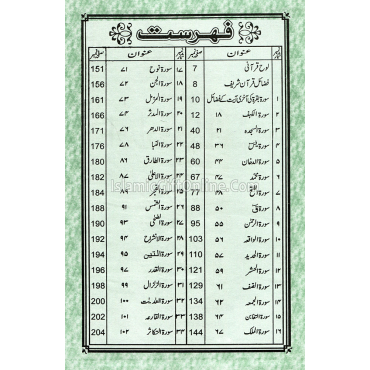 فہرست
نمبر شمار عنوان صفحہ نمبر نمبر شمار عنوان صفحہ نمبر
لوح قرآنی 7 ۱۷ سورۃ نوح ۷۱ 151
فضائل قرآن شریف 8 ۱۸ سورۃ الجن ۷۲ 156
۱ سورۃ بقرہ کی آخری آیت کے فضائل 10 ۱۹ سورۃ المزمل ۷۳ 161
۲ سورۃ الکہف ۱۸ 12 ۲۰ سورۃ المدثر ۷۴ 166
۳ سورۃ السجدہ ۳۲ 40 ۲۱ سورۃ الدھر ۷۶ 171
۴ سورۃ یٰس ۳۶ 46 ۲۲ سورۃ النبا ۷۸ 176
۵ سورۃ الدخان ۴۴ 60 ۲۳ سورۃ الطارق ۸۶ 180
۶ سورۃ محمد ۴۷ 67 ۲۴ سورۃ الاعلیٰ ۸۷ 182
۷ سورۃ الفتح ۴۸ 77 ۲۵ سورۃ الفجر ۸۹ 184
۸ سورۃ ق ۵۰ 88 ۲۶ سورۃ الشمس ۹۱ 188
۹ سورۃ الرحمٰن ۵۵ 95 ۲۷ سورۃ الضحیٰ ۹۳ 190
۱۰ سورۃ الواقعہ ۵۶ 103 ۲۸ سورۃ الانشراح ۹۴ 192
۱۱ سورۃ الحدید ۵۷ 110 ۲۹ سورۃ التین ۹۵ 194
۱۲ سورۃ الحشر ۵۹ 121 ۳۰ سورۃ القدر ۹۷ 196
۱۳ سورۃ الصف ۶۱ 129 ۳۱ سورۃ الزلزال ۹۹ 198
۱۴ سورۃ الجمعہ ۶۲ 134 ۳۲ سورۃ العٰدیٰت ۱۰۰ 200
۱۵ سورۃ التغابن ۶۴ 138 ۳۳ سورۃ القارعہ ۱۰۱ 202
۱۶ سورۃ الملک ۶۷ 144 ۳۴ سورۃ التکاثر ۱۰۲ 204